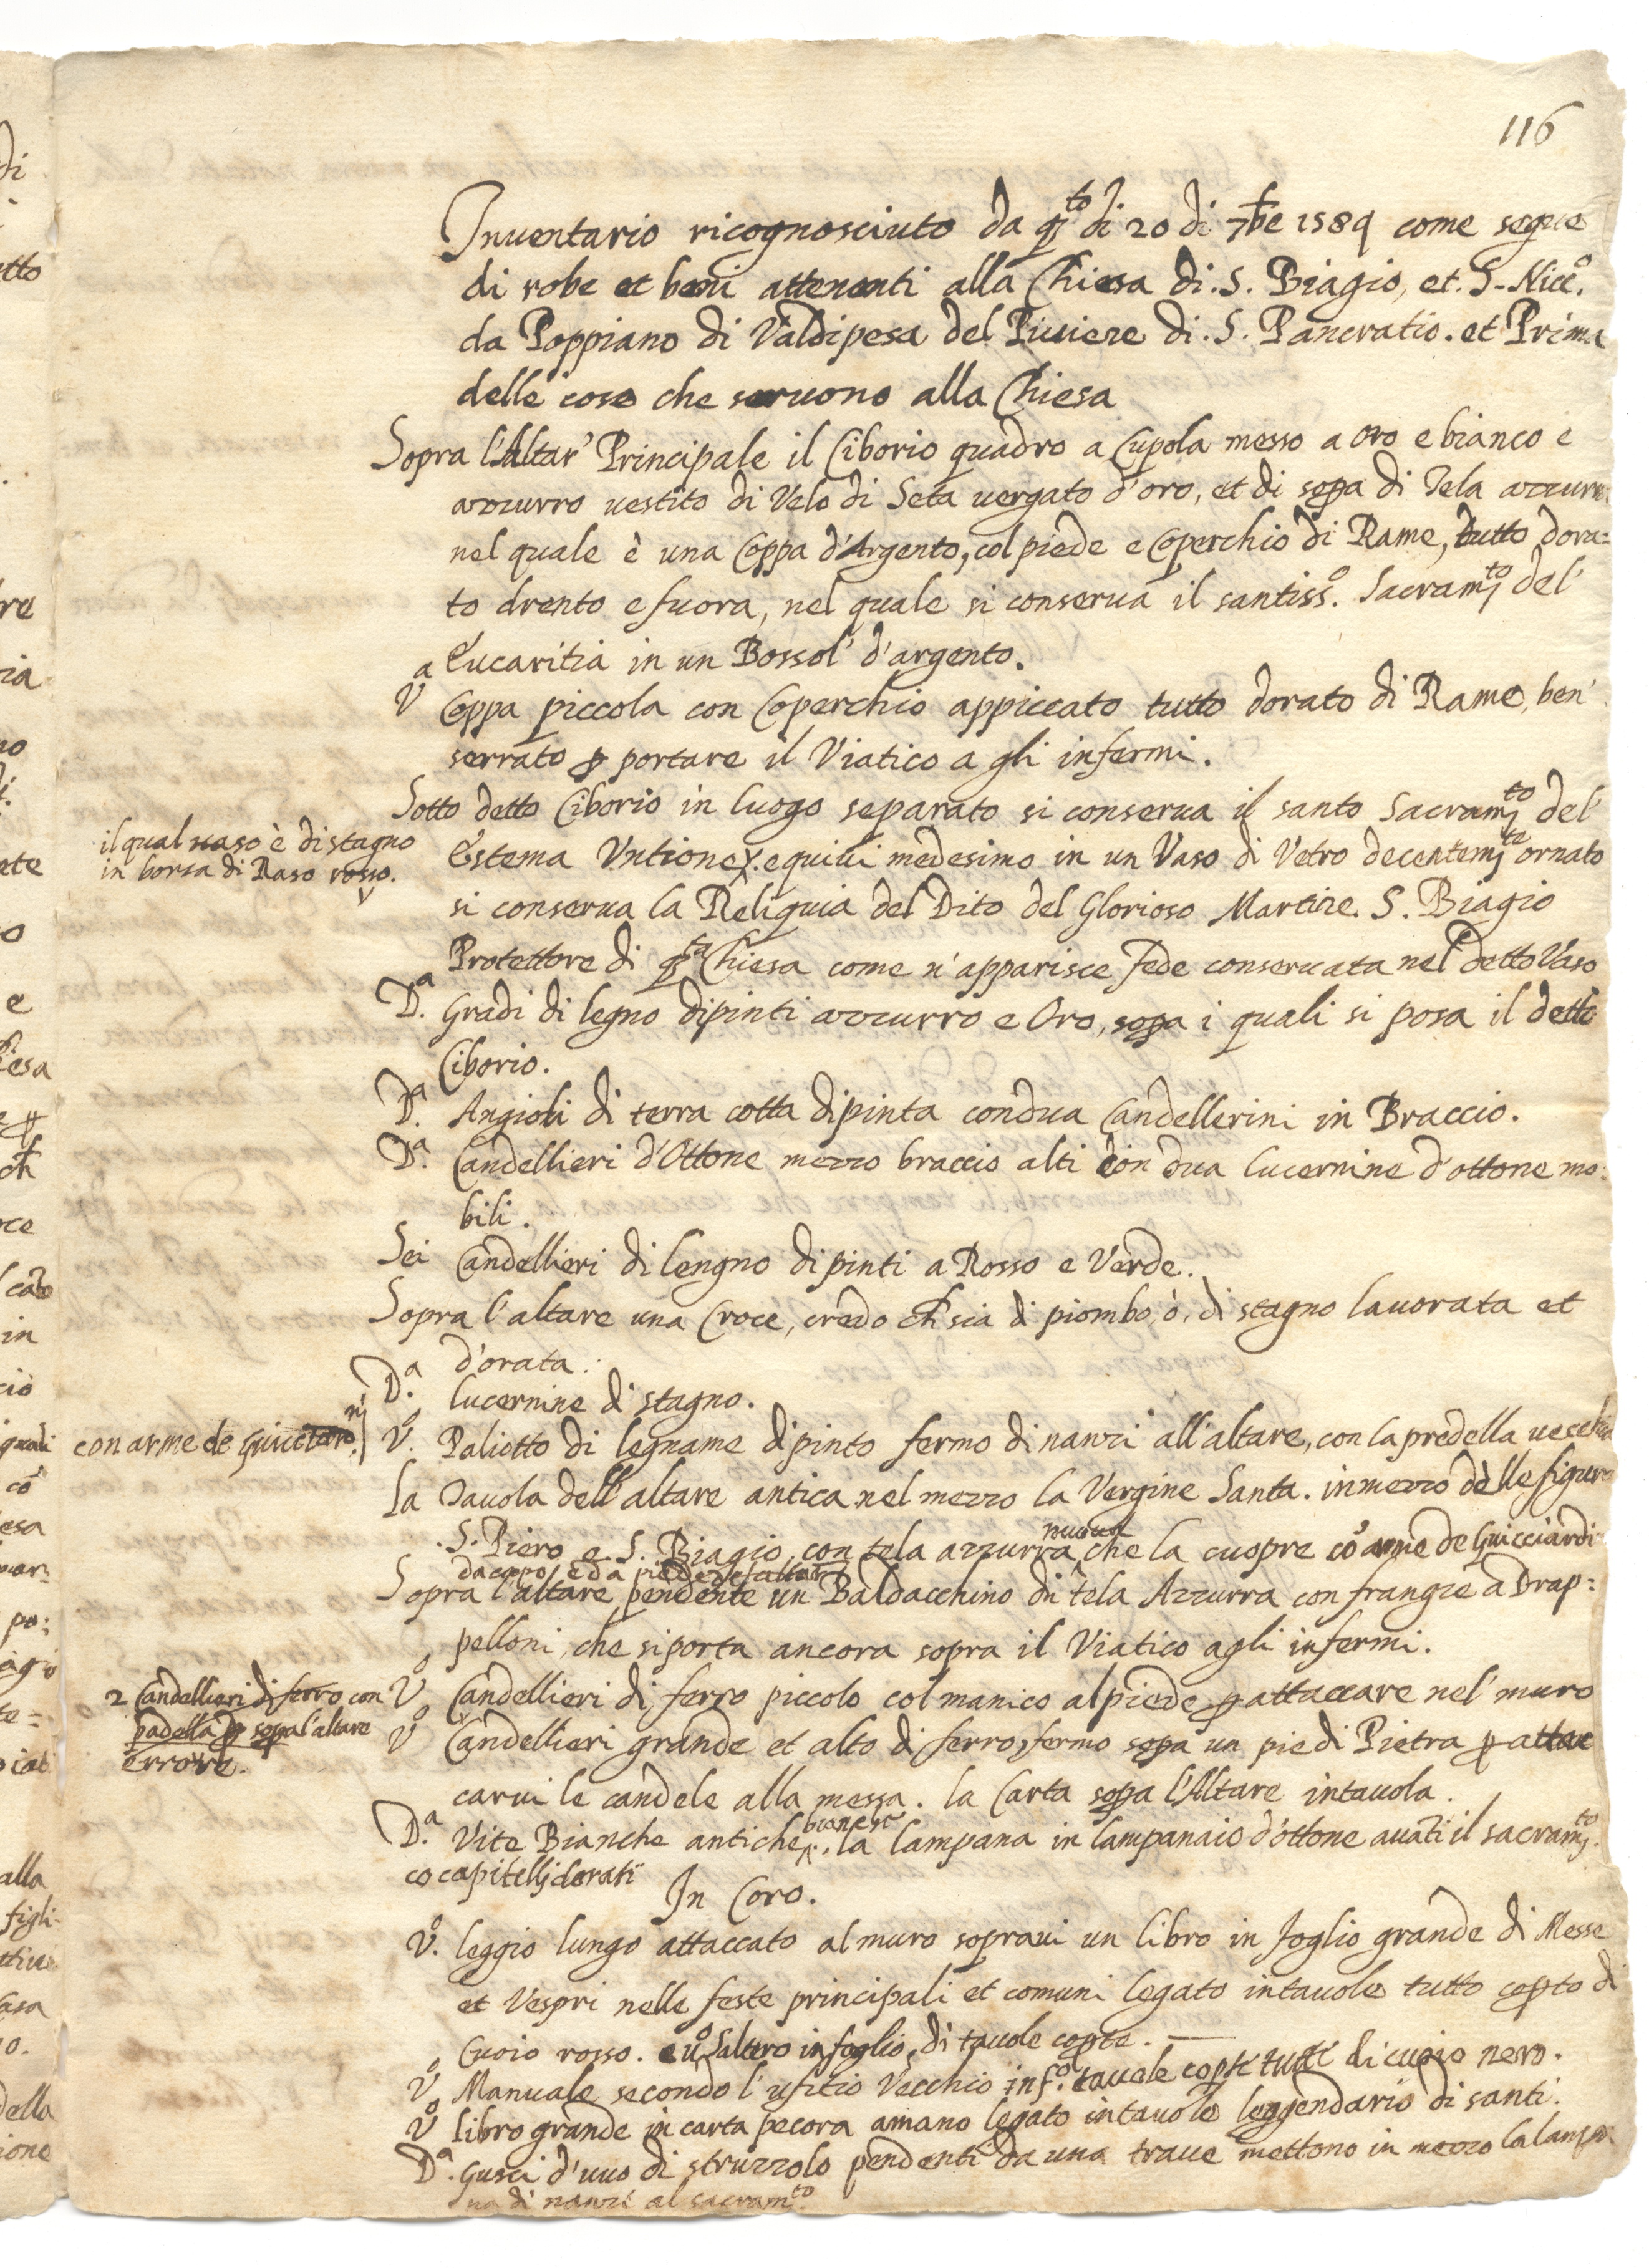 116
Inuentario ricognosciuto da q.to dì 20 di 7bre 1589 come segue
di robe et beni attenenti alla Chiesa di .S. Biagio, et. S. Nicc.o
da Poppiano di Valdipesa del Piuiere di .S. Pancratio. et Prima
delle cose che seruono alla Chiesa
Sopra l'Altar' Principale il Ciborio quadro a Cupola messo a oro e bianco e
azzurro uestito di Velo di Seta uergato d'oro, et di sopa di Tela azzurra
nel quale è una Coppa d'Argento, col piede e Coperchio di Rame, tutto dora=
to drento e fuora, nel quale si conserua il santiss.o Sacram.to del'
Eucaritia in un Bossol' d'argento.
Va Coppa piccola con Coperchio appiccato tutto dorato di Rame, ben'
serrato p portare il Viatico a gli infermi.
Sotto detto Ciborio in luogo separato si conserua il santo Sacram.to del'
il qual uaso è di stagno
in borsa di Raso rosso.
Estema Vntione. e quiui medesimo in un Vaso di Vetro decentem.te ornato
si conserua la Reliquia del Dito del Glorioso Martire. S. Biagio
Protettore di q.ta Chiesa come n'apparisce fede conseruata nel detto Vaso
D.a Gradi di legno dipinti azzurro e Oro, sopa i quali si posa il detto
Ciborio.
D.a Angioli di terra cotta dipinta con dua Candellerini in Braccio.
D.a Candellieri d'Ottone mezzo braccio alti con dua lucernine d'ottone mo=
bili.
Sei Candellieri di lengno dipinti a Rosso e Verde.
Sopra l'altare una Croce, credo ch sia di piombo, ò, di stagno lauorata et
d'orata.
D.a lucernine di stagno.
con arme de
V.o Paliotto di legname dipinto fermo dinanzi all'altare, con la predella uecchia
la Tauola dell'altare antica nel mezzo la Vergine Santa. in mezzo delle figure
.S. Piero e .S. Biagio con tela azzurra nuoua che la cuopre co arme de Guicciardi
da capo, e da piede
Sopra l'altare pendente un Baldacchino di tela Azzurra con frangie a Drap=
pelloni, che si porta ancora sopra il Viatico agli infermi.
2 Candellieri di ferro con
padella p sopa l'altare
errore.
V.o Candellieri di ferro piccolo col manico al piede p attaccare nel' muro
V.o Candellieri grande et alto di ferro, fermo sopa un pie di Pietra p attac
carui le candele alla messa. la Carta sopa l'Altare intauola.
D.a Vite Bianche antiche. la lampana in lampanaio d'ottone auati il sacram.to
co capitelli dorati
In Coro.
V.o leggio lungo attaccato al muro soprauí un libro in foglio grande di Messe
et Vespri nelle feste principali et comuni legato intauole tutto copto di
Cuoio rosso. e u.o Saltero in foglio, di tauole copte.
V.o Manuale secondo l'ufitio Vecchio inf.o tauole copte tutte di cuoio nero.
V.o libro grande in carta pecora amano legato intauole leggendario di santi.
D.a Gusci d'uuo di struzzolo pendenti da una traue mettono in mezzo la lampa
na di nanzi al sacram.to